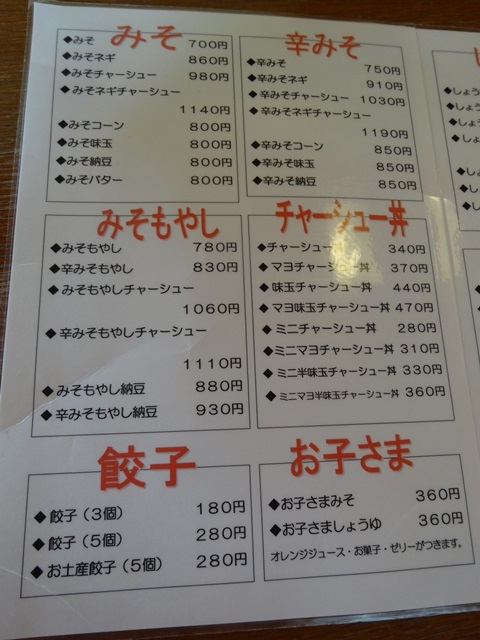 みそ
◆みそ 700円
◆みそネギ 860円
◆みそチャーシュー 980円
◆みそネギチャーシュー
1140円
◆みそコーン 800円
◆みそ味玉 800円
◆みそ納豆 800円
◆みそバター 800円
辛みそ
◆辛みそ 750円
◆辛みそネギ 910円
◆辛みそチャーシュー 1030円
◆辛みそネギチャーシュー
1190円
◆辛みそコーン 850円
◆辛みそ味玉 850円
◆辛みそ納豆 850円
みそもやし
◆みそもやし 780円
◆辛みそもやし 830円
◆みそもやしチャーシュー
1060円
◆辛みそもやしチャーシュー
1110円
◆みそもやし納豆 880円
◆辛みそもやし納豆 930円
チャーシュー丼
◆チャーシュー丼 340円
◆マヨチャーシュー丼 370円
◆味玉チャーシュー丼 440円
◆マヨ味玉チャーシュー丼 470円
◆ミニチャーシュー丼 280円
◆ミニマヨチャーシュー丼 310円
◆ミニ半味玉チャーシュー丼 330円
◆ミニマヨ半味玉チャーシュー丼 360円
餃子
◆餃子（3個） 180円
◆餃子（5個） 280円
◆お土産餃子（5個） 280円
お子さま
◆お子さまみそ 360円
◆お子さましょうゆ 360円
オレンジジュース・お菓子・ゼリーがつきます。
◆しょう
◆しょう
◆しょう
◆しょ
◆しょ
◆し
◆し